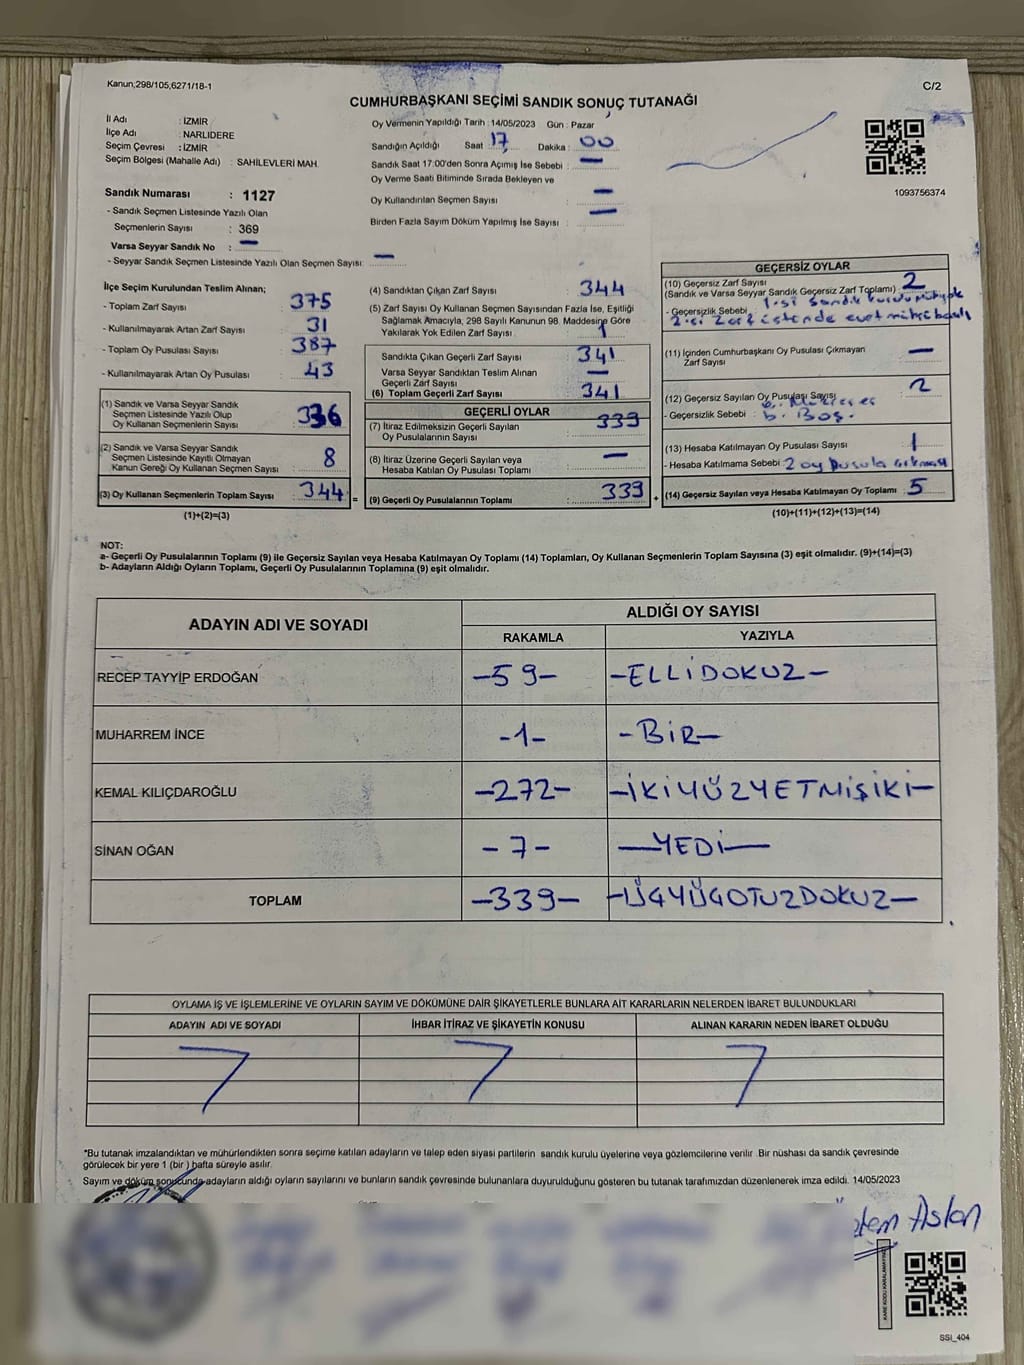 Kanun,298/105,6271/18-1
C/2
CUMHURBAŞKANI SEÇİMİ SANDIK SONUÇ TUTANAĞI
İl Adı : İZMİR
İlçe Adı : NARLIDERE
Seçim Çevresi : İZMİR
Seçim Bölgesi (Mahalle Adı) : SAHİLEVLERİ MAH.
Sandık Numarası : 1127
- Sandık Seçmen Listesinde Yazılı Olan
Seçmenlerin Sayısı : 369
Varsa Seyyar Sandık No : —
- Seyyar Sandık Seçmen Listesinde Yazılı Olan Seçmen Sayısı: —
Oy Vermenin Yapıldığı Tarih : 14/05/2023 Gün : Pazar
Sandığın Açıldığı Saat : 17 Dakika : 00
Sandık Saat 17:00'den Sonra Açımış İse Sebebi : —
Oy Verme Saati Bitiminde Sırada Bekleyen ve
Oy Kullandırılan Seçmen Sayısı : —
Birden Fazla Sayım Döküm Yapılmış İse Sayısı : —
1093756374
İlçe Seçim Kurulundan Teslim Alınan;
- Toplam Zarf Sayısı : 375
- Kullanılmayarak Artan Zarf Sayısı : 31
- Toplam Oy Pusulası Sayısı : 387
- Kullanılmayarak Artan Oy Pusulası : 43
(1) Sandık ve Varsa Seyyar Sandık
Seçmen Listesinde Yazılı Olup
Oy Kullanan Seçmenlerin Sayısı : 336
(2) Sandık ve Varsa Seyyar Sandık
Seçmen Listesinde Kayıtlı Olmayan
Kanun Gereği Oy Kullanan Seçmen Sayısı : 8
(3) Oy Kullanan Seçmenlerin Toplam Sayısı : 344 =
(1)+(2)=(3)
(4) Sandıktan Çıkan Zarf Sayısı : 344
(5) Zarf Sayısı Oy Kullanan Seçmen Sayısından Fazla İse, Eşitliği
Sağlamak Amacıyla, 298 Sayılı Kanunun 98. Maddesine Göre
Yakılarak Yok Edilen Zarf Sayısı : 1
Sandıkta Çıkan Geçerli Zarf Sayısı : 341
Varsa Seyyar Sandıktan Teslim Alınan
Geçerli Zarf Sayısı : —
(6) Toplam Geçerli Zarf Sayısı : 341
GEÇERLİ OYLAR
(7) İtiraz Edilmeksizin Geçerli Sayılan
Oy Pusulalarının Sayısı : 339
(8) İtiraz Üzerine Geçerli Sayılan veya
Hesaba Katılan Oy Pusulası Toplamı : —
(9) Geçerli Oy Pusulalarının Toplamı : 339 +
GEÇERSİZ OYLAR
(10) Geçersiz Zarf Sayısı
(Sandık ve Varsa Seyyar Sandık Geçersiz Zarf Toplamı) : 2
- Geçersizlik Sebebi : 1.si Sandık kurulu mührü yok
2.si Zarf üstünde evet mührü basılı
(11) İçinden Cumhurbaşkanı Oy Pusulası Çıkmayan
Zarf Sayısı : —
(12) Geçersiz Sayılan Oy Pusulası Sayısı : 2
- Geçersizlik Sebebi : b. Boş.
(13) Hesaba Katılmayan Oy Pusulası Sayısı : 1
- Hesaba Katılmama Sebebi : 2 oy pusula çıkması
(14) Geçersiz Sayılan veya Hesaba Katılmayan Oy Toplamı : 5
(10)+(11)+(12)+(13)=(14)
NOT:
a- Geçerli Oy Pusulalarının Toplamı (9) ile Geçersiz Sayılan veya Hesaba Katılmayan Oy Toplamı (14) Toplamları, Oy Kullanan Seçmenlerin Toplam Sayısına (3) eşit olmalıdır. (9)+(14)=(3)
b- Adayların Aldığı Oyların Toplamı, Geçerli Oy Pusulalarının Toplamına (9) eşit olmalıdır.
ADAYIN ADI VE SOYADI
ALDIĞI OY SAYISI
RAKAMLA YAZIYLA
RECEP TAYYİP ERDOĞAN -59- -ELLİDOKUZ-
MUHARREM İNCE -1- -BİR-
KEMAL KILIÇDAROĞLU -272- -İKİYÜZYETMİŞİKİ-
SİNAN OĞAN -7- -YEDİ-
TOPLAM -339- -ÜÇYÜÇOTUZDOKUZ-
OYLAMA İŞ VE İŞLEMLERİNE VE OYLARIN SAYIM VE DÖKÜMÜNE DAİR ŞİKAYETLERLE BUNLARA AİT KARARLARIN NELERDEN İBARET BULUNDUKLARI
ADAYIN ADI VE SOYADI İHBAR İTİRAZ VE ŞİKAYETİN KONUSU ALINAN KARARIN NEDEN İBARET OLDUĞU
*Bu tutanak imzalandıktan ve mühürlendikten sonra seçime katılan adayların ve talep eden siyasi partilerin sandık kurulu üyelerine veya gözlemcilerine verilir .Bir nüshası da sandık çevresinde
görülecek bir yere 1 (bir ) hafta süreyle asılır.
Sayım ve döküm sonucunda adayların aldığı oyların sayılarını ve bunların sandık çevresinde bulunanlara duyurulduğunu gösteren bu tutanak tarafımızdan düzenlenerek imza edildi. 14/05/2023
Aslan
SSI_404